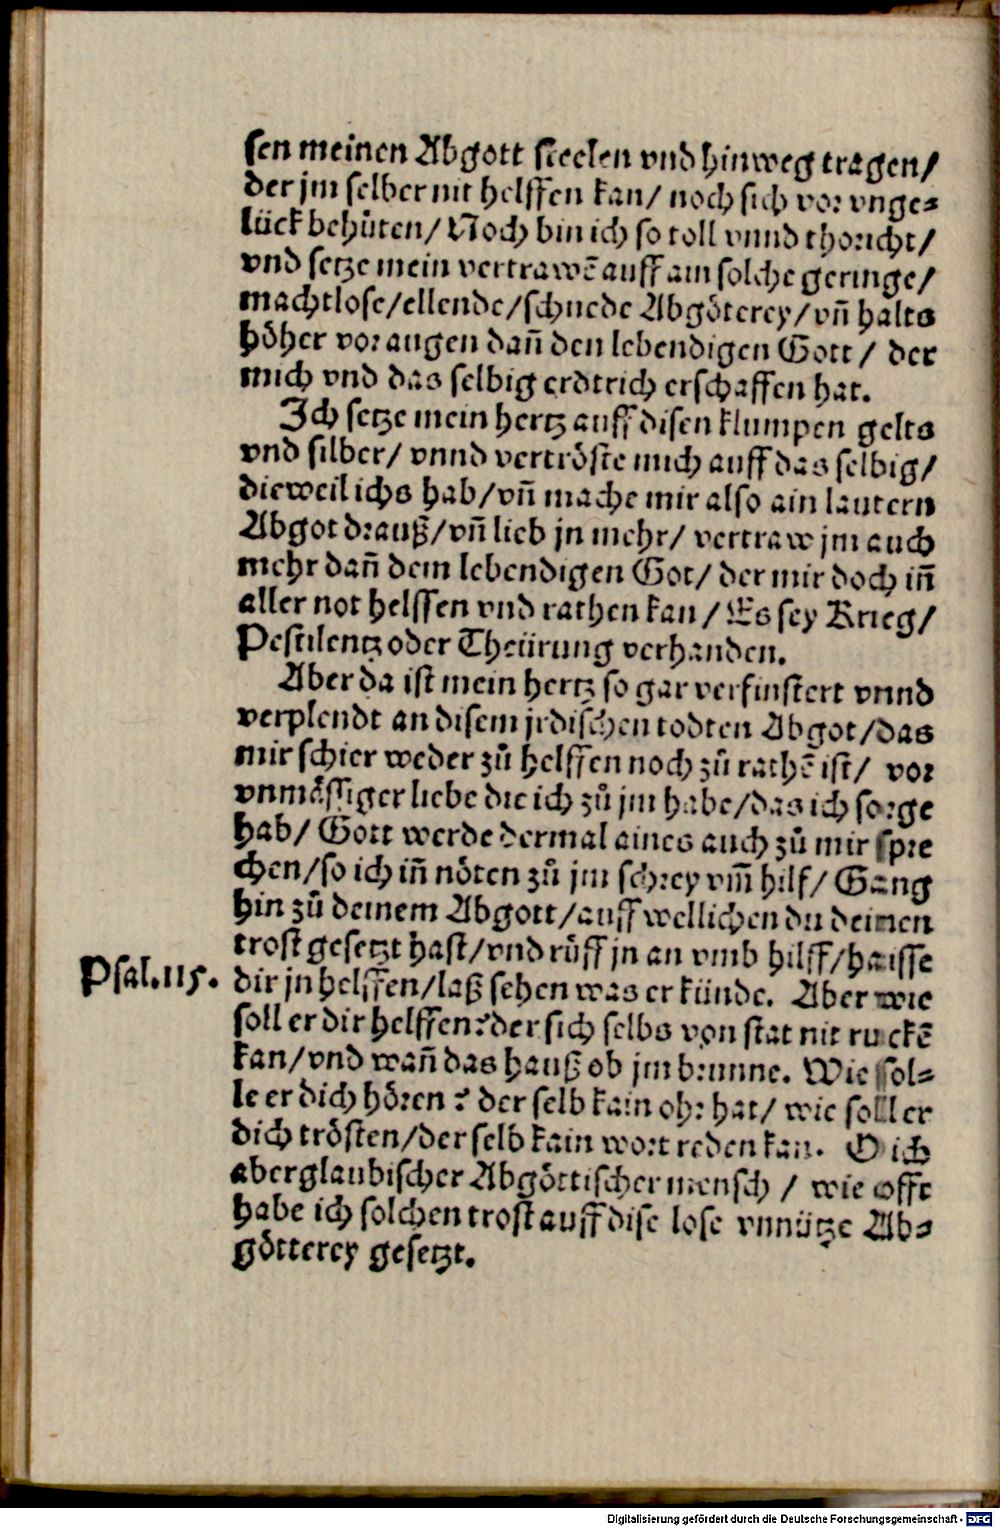 sen meinen Abgott steelen vnd hinweg tragen/
der jm selber nit helffen kan/ noch sich vor vnge-
lück behüten/ Noch bin ich so toll vnnd thoricht/
vnd setze mein vertrawē auff ain solche geringe/
machtlose/ellende/schnede Abgötterey/vñ halts
höher vor augen dañ den lebendigen Gott/ der
mich vnd das selbig erdtrich erschaffen hat.
Ich setze mein hertz auff disen klumpen gelts
vnd silber/ vnnd vertröste mich auff das selbig/
dieweil ichs hab/vñ mache mir also ain lautern
Abgot drauß/vñ lieb jn mehr/ vertraw jm auch
mehr dañ dem lebendigen Got/ der mir doch iñ
aller not helffen vnd rathen kan/ Es sey Krieg/
Pestilentz oder Theürung verhanden.
Aber da ist mein hertz so gar verfinstert vnnd
verplendt an disem jrdischen todten Abgot/das
mir schier weder zů helffen noch zů rathē ist/ vor
vnmässiger liebe die ich zů jm habe/das ich sorge
hab/ Gott werde dermal aines auch zů mir spre
chen/so ich iñ nöten zů jm schrey vm̃ hilf/ Gang
hin zů deinem Abgott/auff wellichen du deinen
trost gesetzt hast/vnd růff jn an vmb hilff/haisse
Psal.115. dir jn helffen/laß sehen was er künde. Aber wie
soll er dir helffen?der sich selbs von stat nit ruckē
kan/vnd wañ das hauß ob jm brunne. Wie sol-
le er dich hören? der selb kain ohr hat/ wie soll er
dich trösten/der selb kain wort reden kan. O ich
aberglaubischer Abgöttischer mensch / wie offt
habe ich solchen trost auff dise lose vnnütze Ab-
götterey gesetzt.
Digitalisierung gefördert durch die Deutsche Forschungsgemeinschaft - DFG